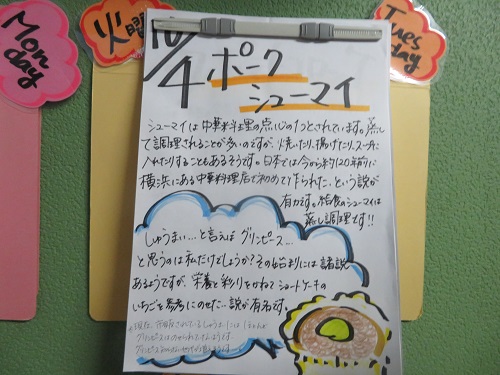 Mon
day
火曜
Tues
day
10/4 ポーク
シューマイ
シューマイは中華料理の点心の1つとされています。蒸し
て調理されることが多いのですが、焼いたり、揚げたり、スープに
入れたりすることもあるそうです。日本では今から約120年前に
横浜にある中華料理店で初めて作られた、という説が
有力です。給食のシューマイは
蒸し調理です!!
しゅうまい…と言えば グリンピース…
と思うのは私だけでしょうか?その始まりには諸説
あるようですが、栄養と彩りをかねてショートケーキの
いちごを参考にのせた…説が有名です。
グリンピースはのせられて